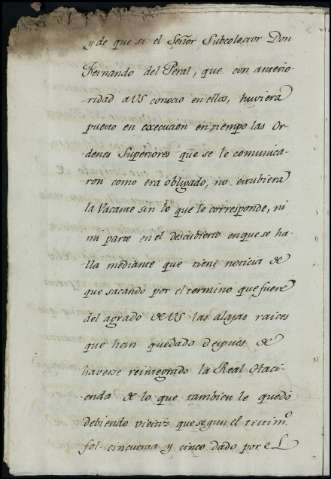 y de que si el Señor Subcolector Don
Fernando del Peral, que con anterio-
ridad a VS conocio en ellas, huviera
puesto en execucion en tiempo las Or-
denes Superiores que se le comunica-
ron como era obligado, no estubiera
la Vacante sin lo que le corresponde, ni
mi parte en el descubierto en que se ha-
lla mediante que tiene noticia de
que sacando por el termino que fuere
del agrado de VS las alajas raices
que han quedado despues de
haverse reintegrado la Real Haci-
enda de lo que tambien le quedó
debiendo viento que segun el
fol. cincuenta y cinco dado por el